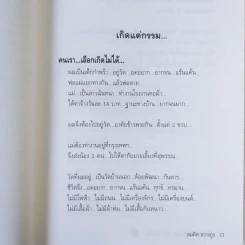 เกิดแต่กรรม...
คนเรา...เลือกเกิดไม่ได้...
ผมเป็นเด็กกำพร้า...อยู่วัด...อดอยาก...ยากจน...แร้นแค้น
พ่อแม่แยกทางกัน...แล้วพ่อตาย
แม่...เป็นสาวฉันทนา...ทำงานโรงงานทอผ้า...
ได้ค่าจ้างวันละ 14 บาท...ฐานะทางบ้าน...ยากจนมาก
ผมจึงต้องไปอยู่วัด...อาศัยข้าวพระกิน...ตั้งแต่ 2 ขวบ...
แม่ต้องทำงานอยู่ที่กรุงเทพฯ...
จึงส่งน้อง 2 คน...ไปให้ตากับยายเลี้ยงที่สุพรรณ...
วัดที่ผมอยู่...เป็นวัดบ้านนอก...ด้อยพัฒนา...กันดาร...
ชีวิตจึง...อดอยาก...ยากจน...แร้นแค้น...ทุกข์...ทรมาน...
ไม่มีไฟฟ้า...ไม่มีถนน...ไม่มีเครื่องจักร...ไม่มีเครื่องยนต์...
ไม่มีเสื้อผ้า...ไม่มีผ้าห่ม...ไม่มีเสื้อกันหนาว...
11